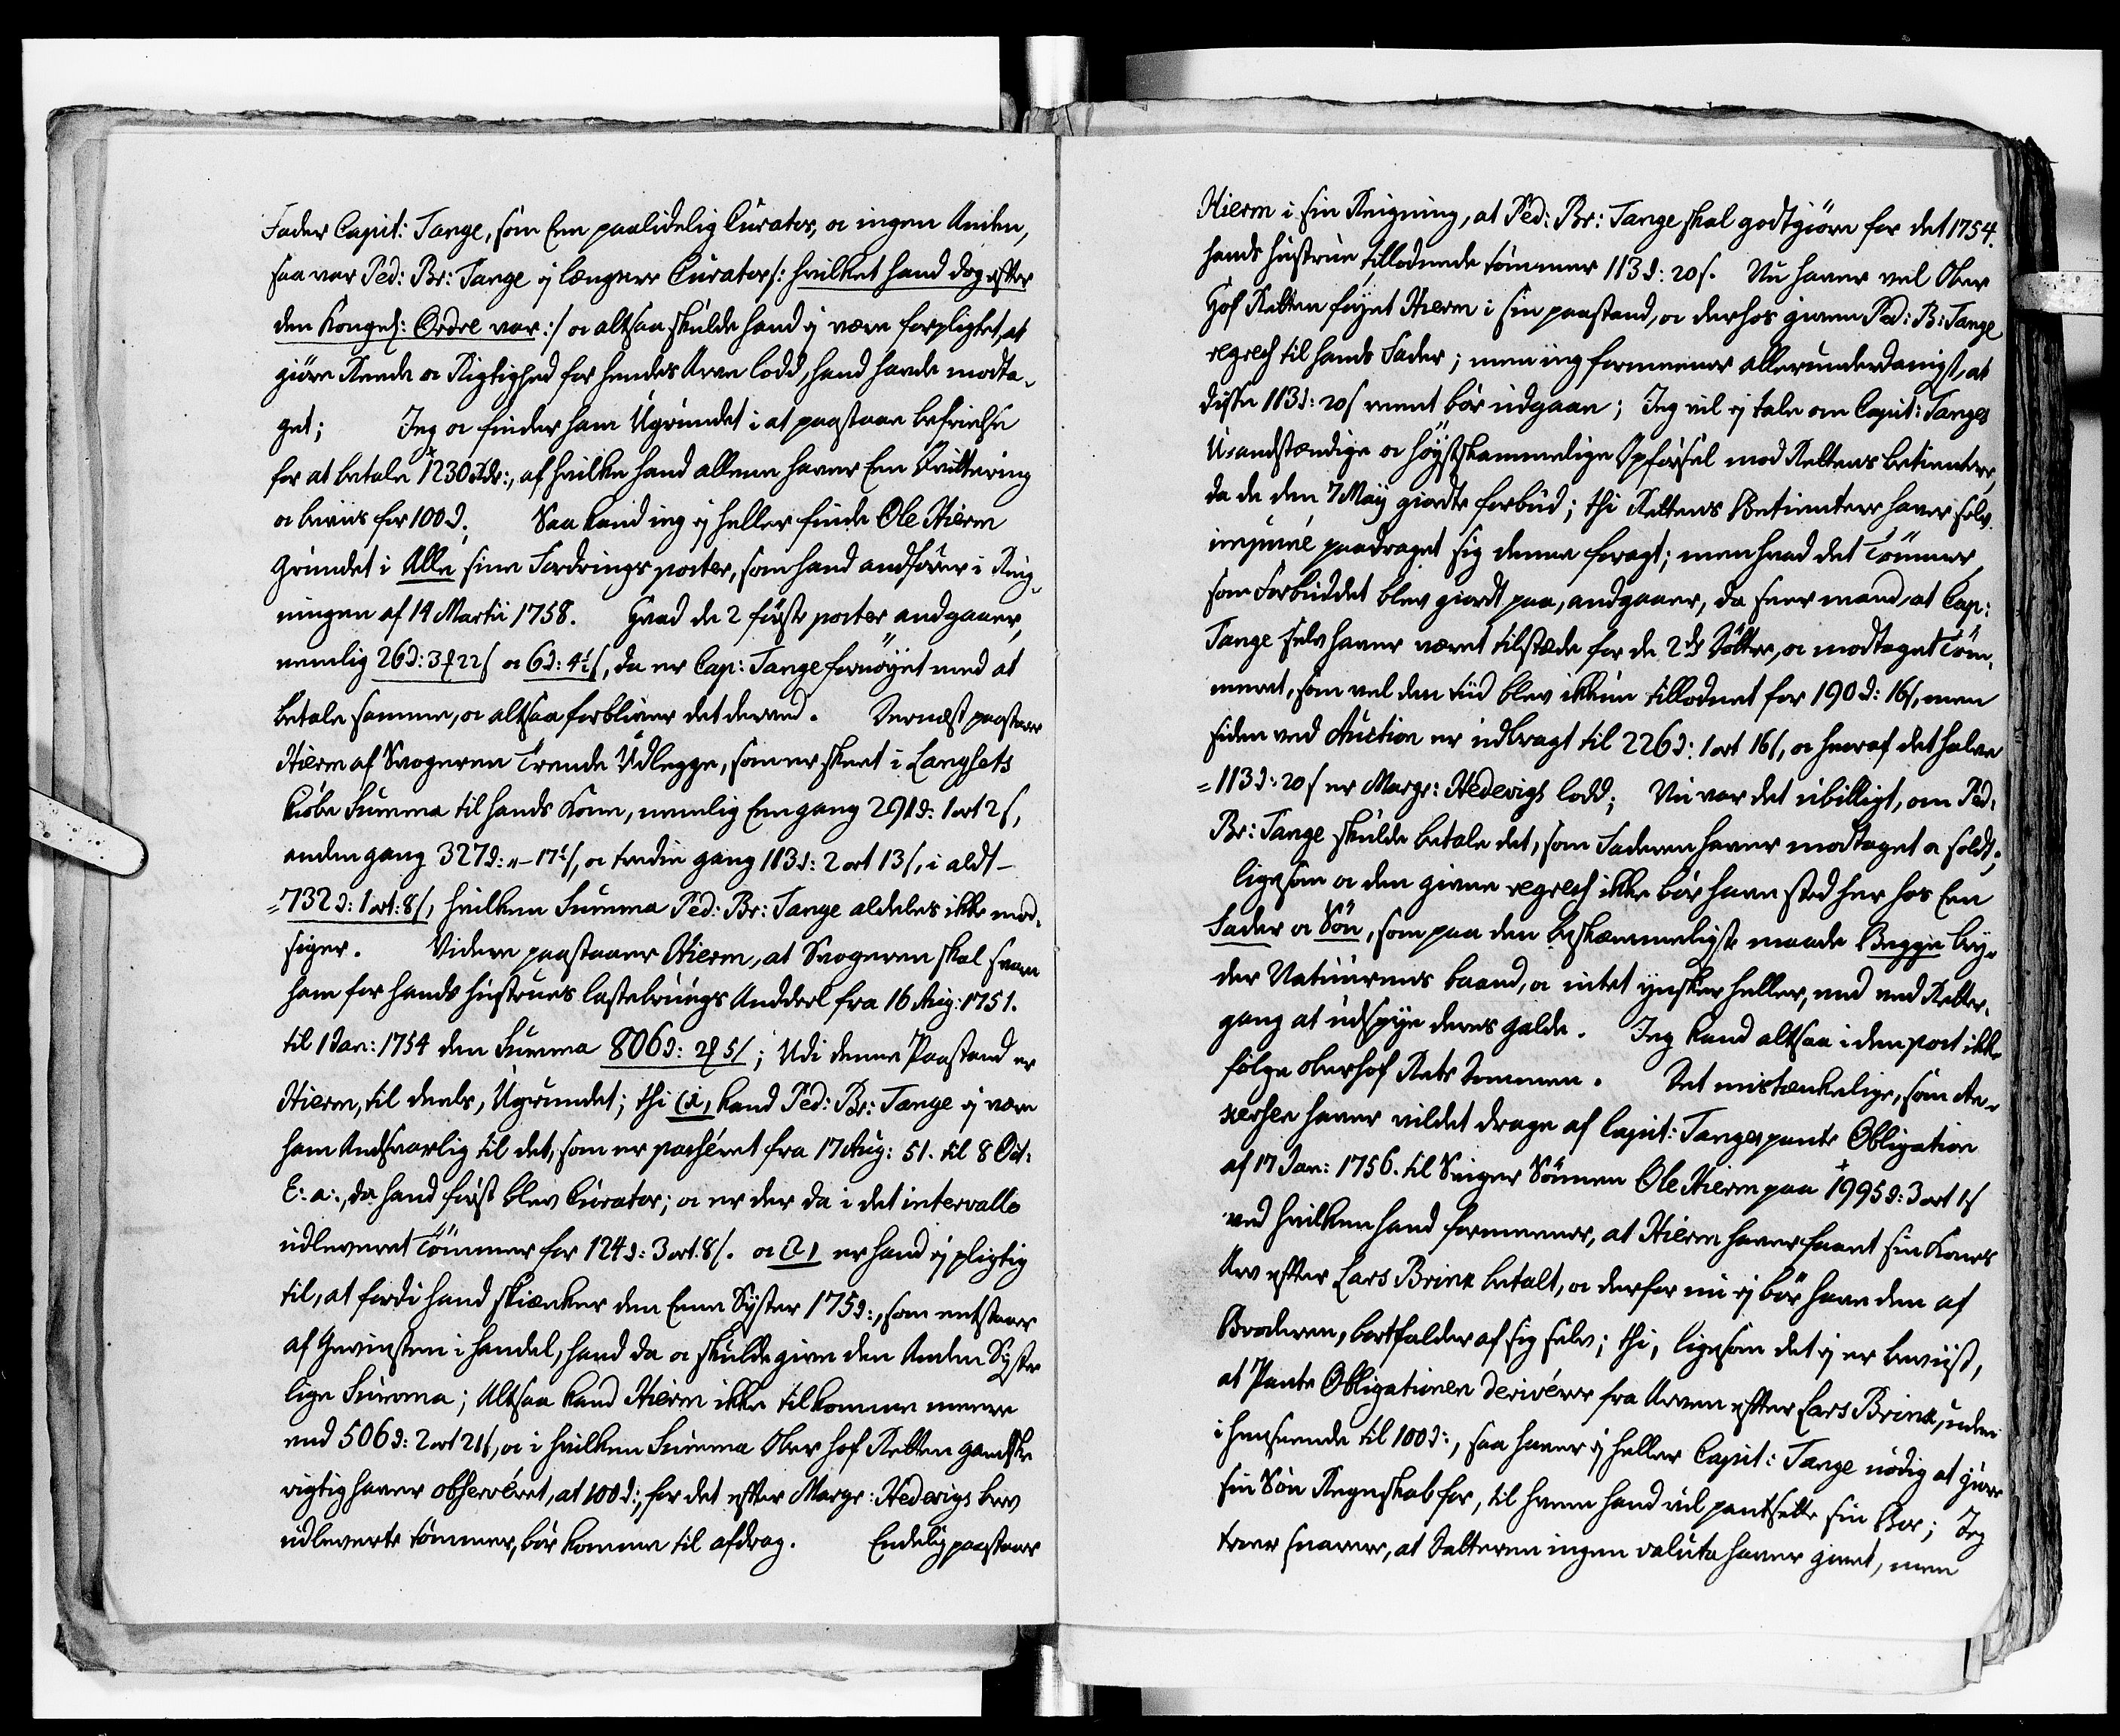 Fader Capit: Tange, som Een paalidelig Curator, oc ingen Anden,
saa var Ped: Br: Tange ej længere Curator /: hvilket hand dog efter
den Kongel: Ordre var :/ oc altsaa skulde hand ej være forpligtet, at
giöre Reede oc Rigtighed for hendes Arve lodd, hand havde modta-
get; Jeg oc finder ham Ugrundet i at paastaae befrielse
for at betale 1230 Rdr:, af hvilke hand allene haver Een Qvittering
oc beviis for 100 d. Saa kand jeg ej heller finde Ole Hierm
grundet i Alle sine Fordrings poster, som hand andförer i Reig-
ningen af 14 Martii 1758. Hvad de 2 förste poster andgaaer,
nemlig 26 d: 3 ort 22 s oc 6 d: 4½ s, da er Cap: Tange fornöyet med at
betale samme, oc altsaa forbliver det derved. Dernæst paastaaer
Hierm af Svogeren Trende Udlegge, som er skeet i Langsets
Kiöbe Summa til hands Kone, nemlig Eengang 291 d: 1 ort 2 s,
anden gang 327 d: " - 17½ s, oc tredie gang 113 d: 2 ort 13 s, i aldt -
= 732 d: 1 ort: 8 s, hvilken Summa Ped: Br: Tange aldeles ikke mod-
siger. Videre paastaaer Hierm, at Svogeren skal svare
ham for hands hustrues lastebrugs Anddeel fra 16 Aug: 1751.
til 1 Jan: 1754 den Summa 806 d: 2 ort 5 s; Udi denne Paastand er
Hierm, til deels, Ugrundet; thi (1, kand Ped: Br: Tange ej være
ham Andsvarlig til det, som er passéret fra 17 Aug: 51. til 8 Oct:
E: a:, da hand först blev Curator; oc er der da i det intervallo
udleveret Tömmer for 124 d: 3 ort. 8 s. oc (2) er hand ej pligtig
til, at fordi hand skiænker den Eene Syster 175 d:, som endstaaer
af Gevinsten i handel, hand da oc skulde give den Anden Syster
lige Summa; Altsaa kand Hierm ikke tilkomme meere
end 506 d: 2 ort 21 s, oc i hvilken Summa Ober hof Retten gandske
rigtig haver observéret, at 100 d:, for det efter Margr: Hedevigs brev
udleverte tömmer, bör komme til afdrag. Endelig paastaaer
Hierm i sin Reigning, at Ped: Br: Tange skal godtgiöre for det 1754.
hands hustrue tillodnede tömmer 113 d: 20 s. Nu haver vel Ober
Hof Retten föyet Hierm i sin paastand, oc derhos given Ped: B: Tange
regress til hands Fader; men jeg formeener allerunderdanigst, at
disse 113 d: 20 s reent bör udgaae; Jeg vil ej tale om Capit: Tanges
Uandstændige oc höystskammelige Opförsel mod Rettens betientere,
da de den 7 Maÿ giordte forbud; thi Rettens Betientere haver selv
impuné paadraget sig denne foragt; men hvad det Tömmer,
som Forbuddet blev giordt paa, andgaaer, da seer mand, at Cap:
Tange selv haver været tilstæde for de 2de Dötter, oc modtaget Töm-
meret, som vel den tiid blev ikkun tillodnet for 190 d: 16 s, men
siden ved Auction er udbragt til 226 d: 1 ort 16 s, oc heraf det halve
= 113 d: 20 s er Margr: Hedevigs lodd; Nu var det ubilligt, om Ped:
Br: Tange skulde betale det, som Faderen haver modtaget oc soldt;
ligesom oc den givne regress ikke bör have sted her hos Een
Fader oc Sön, som paa den beskæmmeligste maade Begge bry-
der Naturens baand, oc intet ynsker heller, end ved Retter-
gang at udspye deres galde. Jeg kand altsaa i den post ikke
fölge Oberhof Rets Dommen. Det mistænkelige, som An-
xersen haver villet drage af Capit: Tanges pante Obligation
af 17 Jan: 1756. til Sviger Sönnen Ole Hierm paa 1995 d: 3 ort 1 s
ved hvilken hand formeener, at Hierm haver faaet sin Kones
Arv efter Lars Brinx betalt, oc derfor nu ej bör have den af
Broderen, bortfalder af sig selv; thi, ligesom det ej er beviist,
at Pante Obligationen derivérer fra Arven efter Lars Brinx, uden
i henseende til 100 d:, saa haver ej heller Capit: Tange nödig at giöre
sin Sön Regnskab for, til hvem hand vil pantsette sin Boe; Jeg
troer snarere, at Datteren ingen valuta haver givet, men